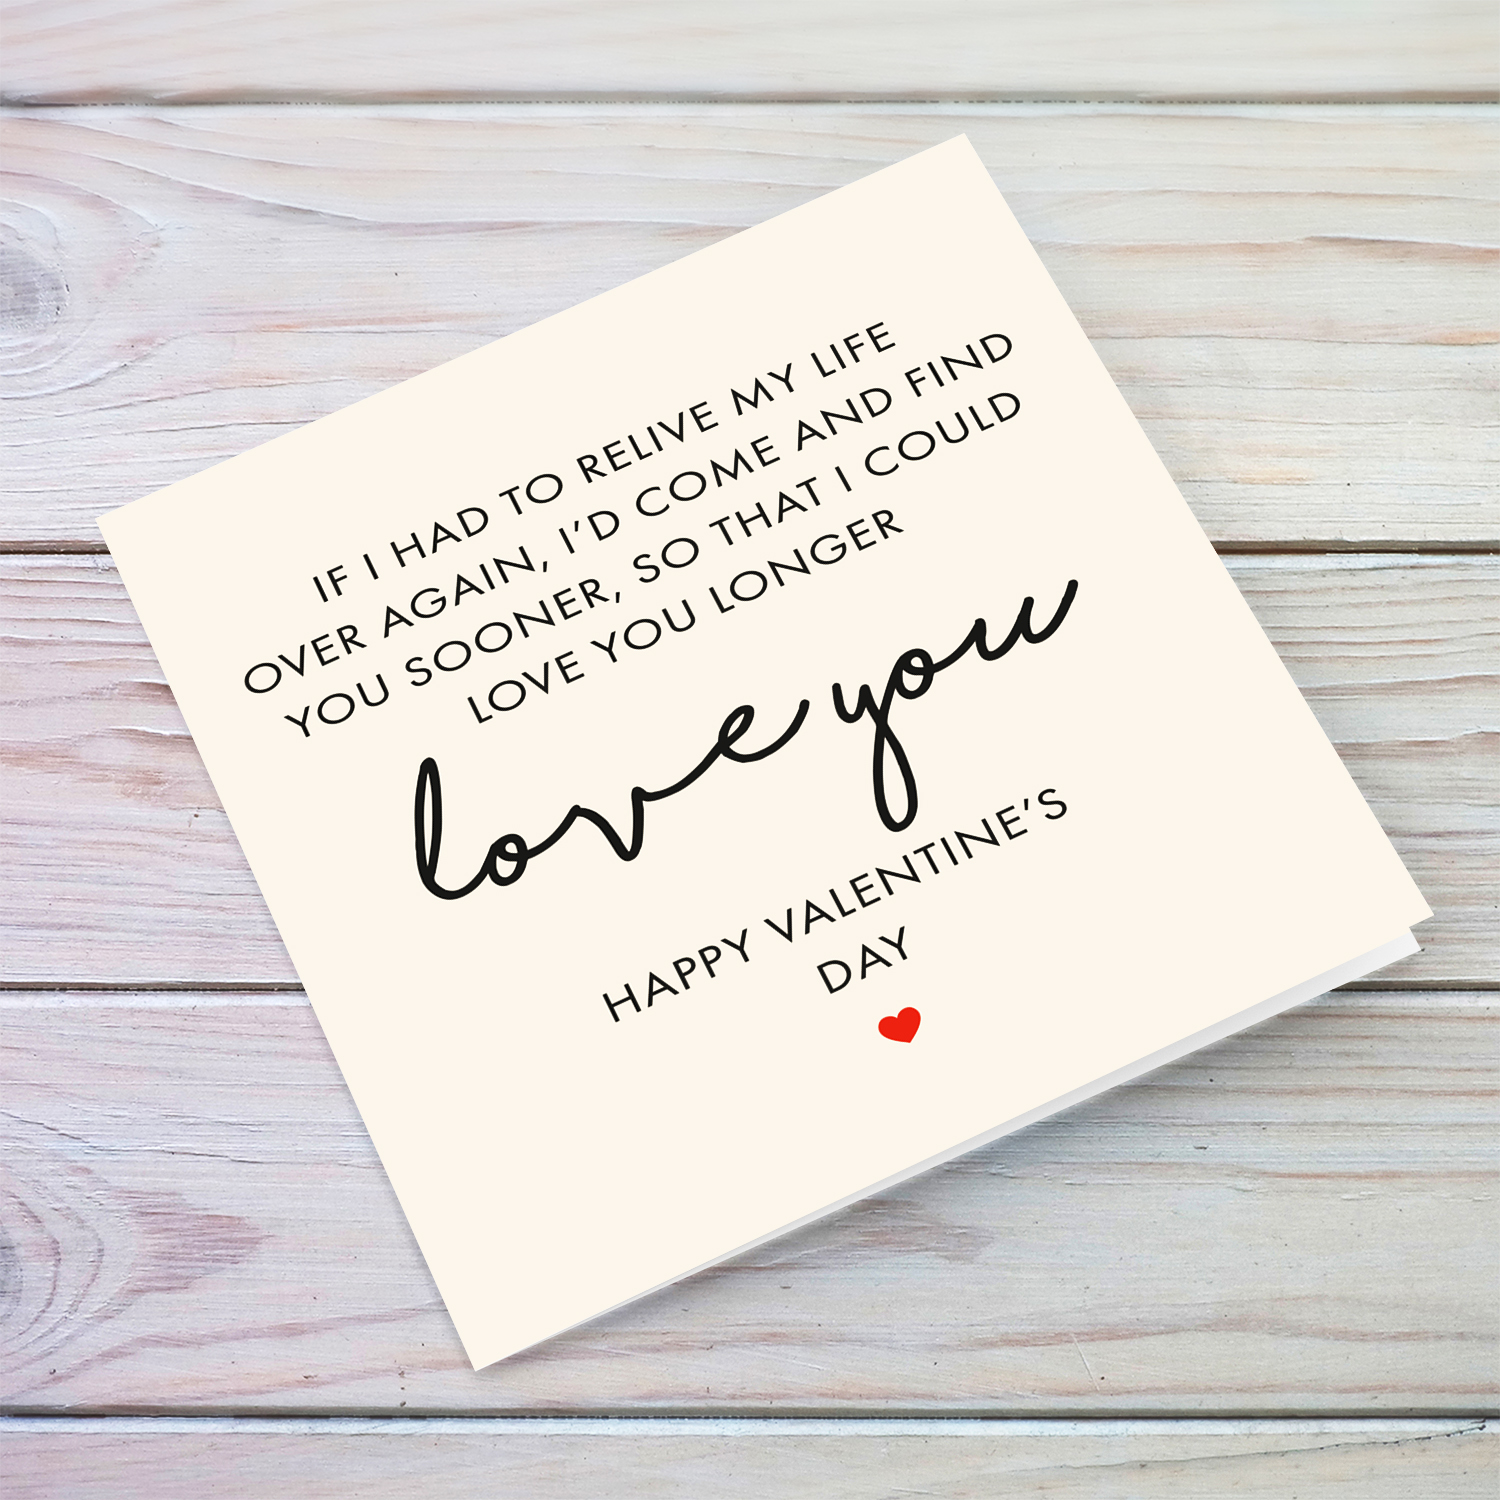 IF I HAD TO RELIVE MY LIFE
OVER AGAIN, I'D COME AND FIND
YOU SOONER, SO THAT I COULD
LOVE YOU LONGER
love you
HAPPY VALENTINE'S
DAY